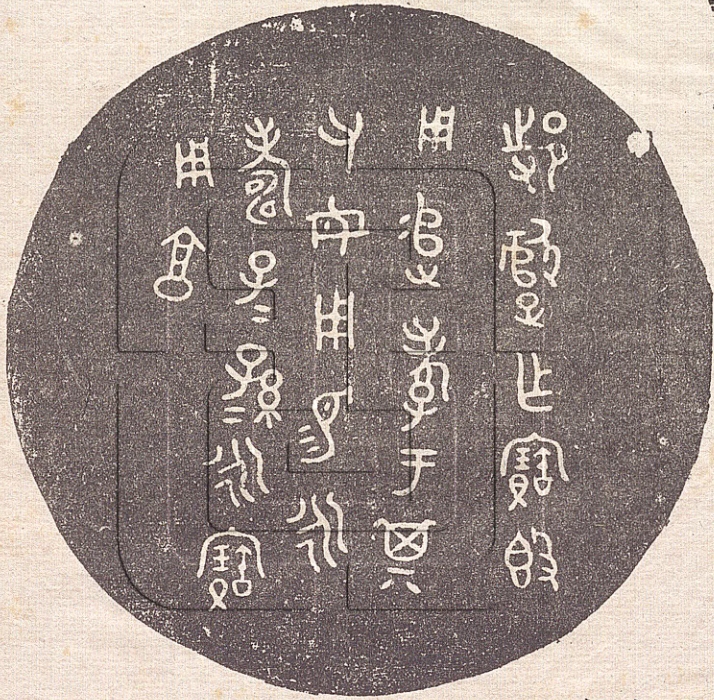 邿乍寶𣪘
用追孝于其
父母用易永
壽子=孫=永寶
用享